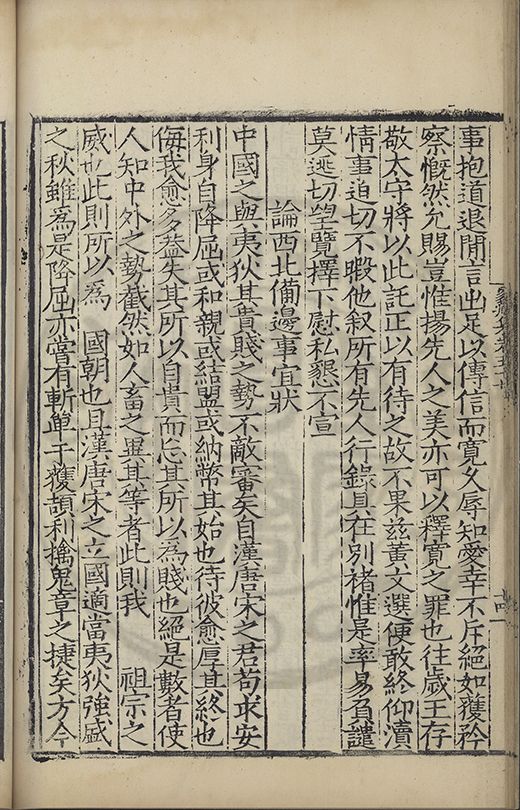 事抱道退閒言出足以傳信而寬夂辱知愛幸不斥絕如獲矜
察慨然允賜豈惟揚先人之美亦可以釋寬之罪也往歲王存
敬太守將以此託正以有待之故不果兹黃文選便敢終仰瀆
情事迫切不暇他叙所有先人行錄具在别褚惟是率易負譴
莫逃切望覽擇下慰私懇不宣
論西北備邊事宜狀
中國之與夷狄其貴賤之勢不敵審矣自漢唐宋之君苟求安
利身自降屈或和親或結盟或納幣其始也待彼愈厚其終也
侮我愈多葢失其所以自貴而忘其所以為賤也絕是數者使
人知中外之勢截然如人畜之異其等者此則我 祖宗之
威也此則所以為 國朝也且漢唐宋之立國適當夷狄強盛
之秋雖為是降屈亦嘗有斬單于獲頡利擒鬼章之捷矣方今